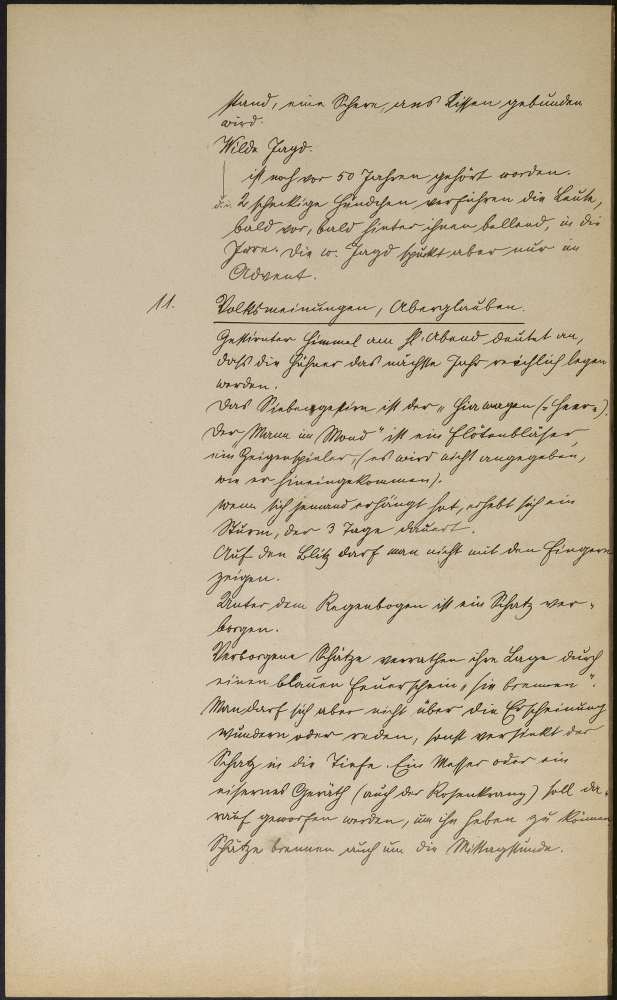 stand, eine Schere, ans Kissen gebunden
wird.
Wilde Jagd.
ist noch vor 50 Jahren gehört worden.
2 scheckige Hündchen verführen die Leute,
bald vor, bald hinter ihnen bellend, in die
Irre. Die w. Jagd spukt aber nur im
Advent.
11. Volksmeinungen, Aberglauben.
Gestirnter Himmel am hl. Abend deutet an,
dass die Hühner das nächste Jahr reichlich legen
werden.
Das Siebengestirn ist der „
Der „Mann im Mond" ist ein Flötenbläser,
ein Geigenspieler, (es wird nicht angegeben,
wie er hineingekommen).
wenn sich jemand erhängt hat, erhebt sich ein
Sturm, der 3 Tage dauert.
Auf den Blitz darf man nicht mit den Fingern
zeigen.
Unter dem Regenbogen ist ein Schatz ver-
borgen.
Verborgene Schätze verrathen ihre Lage durch
einen blauen Feuerschein, „sie brennen".
Man darf sich aber nicht über die Erscheinung
wundern oder reden, sonst versinkt der
Schatz in die Tiefe. Ein Messer oder ein
eisernes Geräth (auch der Rosenkranz) soll da-
rauf geworfen werden, um ihn heben zu können
Schätze brennen auch um die Mittagstunde.